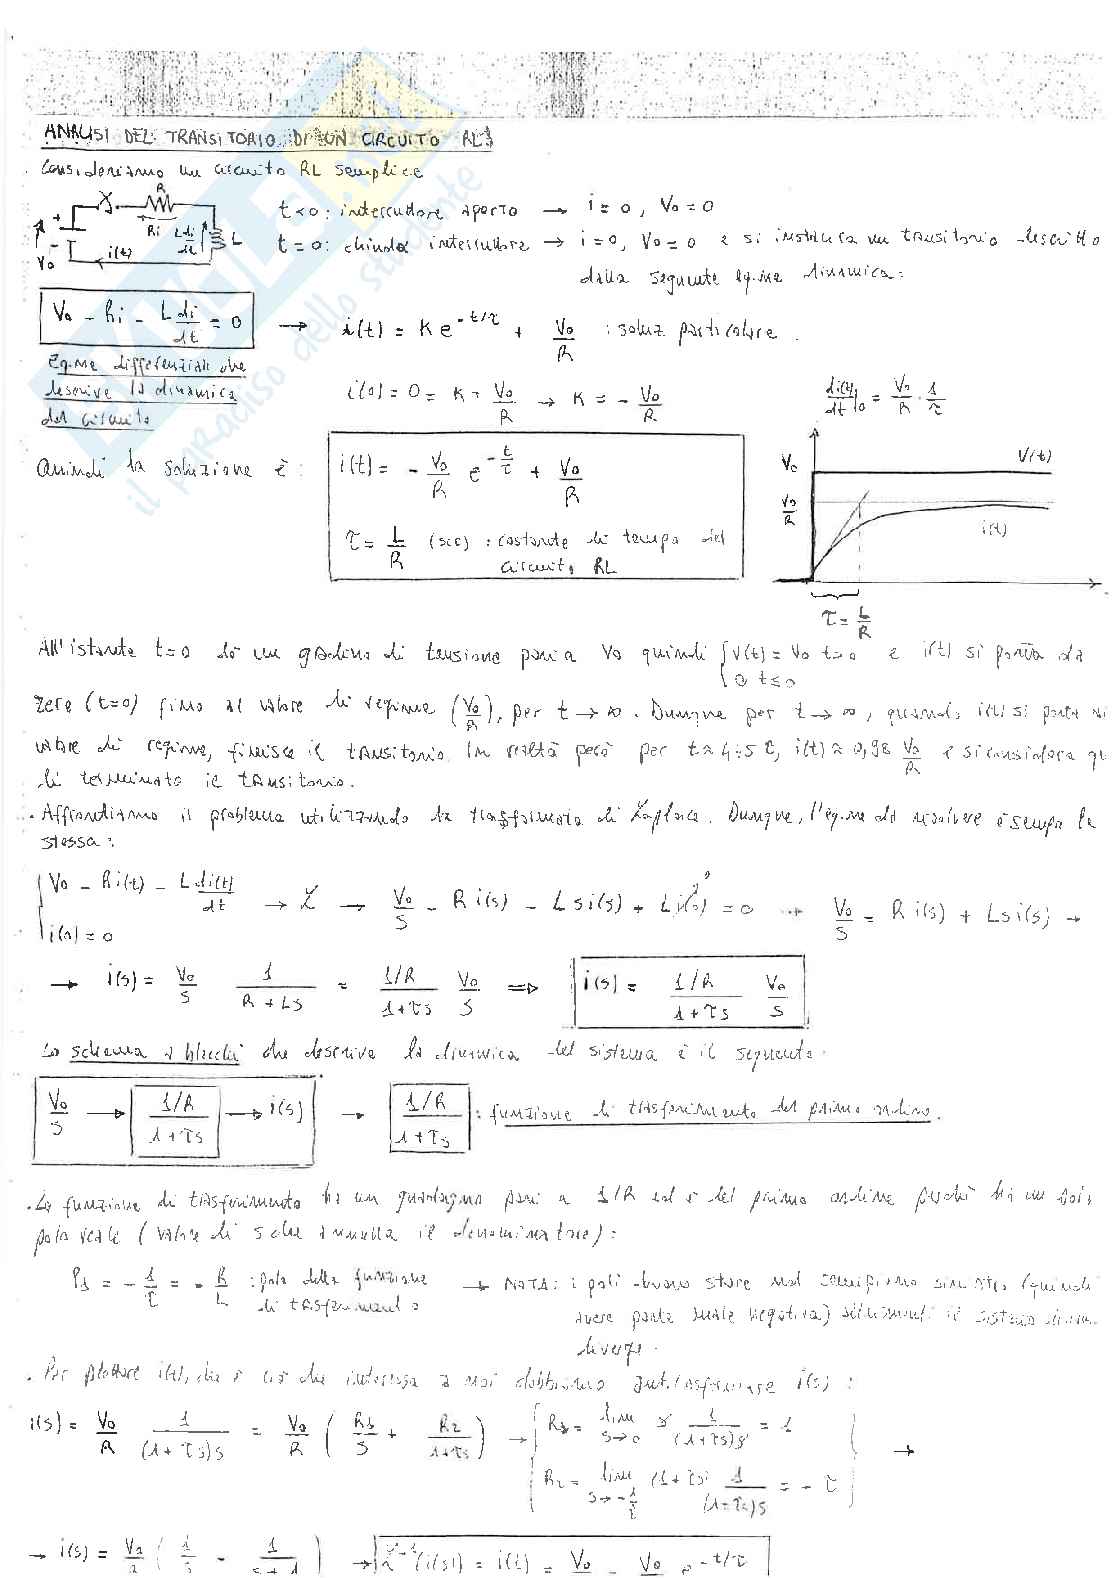 ANALISI DEL TRANSITORIO DI UN CIRCUITO RL
Consideriamo un circuito RL semplice
t<0: interruttore aperto → i = 0, V₀ = 0
t=0: chiudo interruttore → i=0, V₀=0 e si instaura un transitorio descritto
dalla seguente eq.ne dinamica:
R
Ri
L di/dt
L
+
-
V₀
i(t)
V₀ - Ri - L di/dt = 0 → i(t) = K e^(-t/τ) + V₀/R : soluz particolare.
Eq.ne differenziale che
descrive la dinamica
del circuito
i(0) = 0 = K + V₀/R → K = - V₀/R
di(t)/dt|₀ = V₀/R · 1/τ
Quindi la soluzione è:
i(t) = - V₀/R e^(-t/τ) + V₀/R
τ = L/R (sec) : costante di tempo del
circuito RL
V₀
V(t)
V₀/R
i(t)
τ = L/R
All'istante t=0 do un gradino di tensione pari a V₀ quindi { V(t) = V₀ t>0 e i(t) si porta da
0 t≤0
zero (t=0) fino al valore di regime (V₀/R), per t → ∞. Dunque per t → ∞, quando i(t) si porta al
valore di regime, finisce il transitorio. In realtà però per t≈4÷5 τ, i(t) ≈ 0,98 V₀/R e si considera qui
di terminato il transitorio.
. Affrontiamo il problema utilizzando la trasformata di Laplace. Dunque, l'eq.ne da risolvere è sempre la
stessa:
{ V₀ - Ri(t) - L di(t)/dt → ℒ → V₀/s - R i(s) - L s i(s) + L i(0) = 0 → V₀/s = R i(s) + L s i(s) →
i(0) = 0
0
→ i(s) = V₀/s 1/(R + Ls) = (1/R)/(1+τs) V₀/s ⇒ i(s) = (1/R)/(1+τs) V₀/s
Lo schema a blocchi che descrive la dinamica del sistema è il seguente:
V₀/s → (1/R)/(1+τs) → i(s) → (1/R)/(1+τs) : funzione di trasferimento del primo ordine.
. La funzione di trasferimento ha un guadagno pari a 1/R ed è del primo ordine perché ha un solo
polo reale (valore di s che annulla il denominatore):
P₁ = - 1/τ = - R/L : polo della funzione
di trasferimento
→ NOTA: i poli devono stare nel semipiano sinistro (quindi
avere parte reale negativa) altrimenti il sistema
diverge.
. Per plottare i(t), che è ciò che interessa a noi dobbiamo antitrasformare i(s):
i(s) = V₀/R 1/((1+τs)s) = V₀/R ( R₁/s + R₂/(1+τs) ) → { R₁ = lim s→0 s 1/((1+τs)s) = 1 →
R₂ = lim s→-1/τ (1+τs) 1/((1+τs)s) = - τ
→ i(s) = V₀/R ( 1/s - 1/(s+1 ) → ℒ⁻¹(i(s)) = i(t) = V₀ - V₀ e^(-t/τ)
il paradiso dello studente